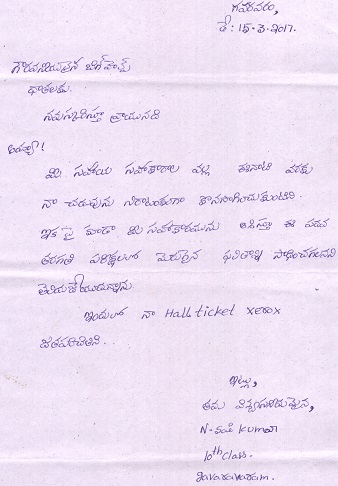 గవరవరం,
తే: 15-3-2017.
గౌరవనీయులైన
దాతలకు
నమస్కరిస్తూ వ్రాయునది
అయ్యా!
మీ సహాయ సహకారాల వల్ల ఈనాటి వరకు
నా చదువును నిరాటంకంగా కొనసాగించుకుంటిని.
ఇక పై కూడా మీ సహకారమును ఆశిస్తూ ఈ పదవ
తరగతి పరీక్షలలో మెరుగైన ఫలితాన్ని సాధించగలనని
తెలియజేయుచున్నాను
ఇందులో నా Hall ticket xerox
జతపరచితిని.
ఇట్లు,
తమ విశ్వాసపాత్రుడైన,
N. Sai Kumar
10th class.
Gavaravaram.